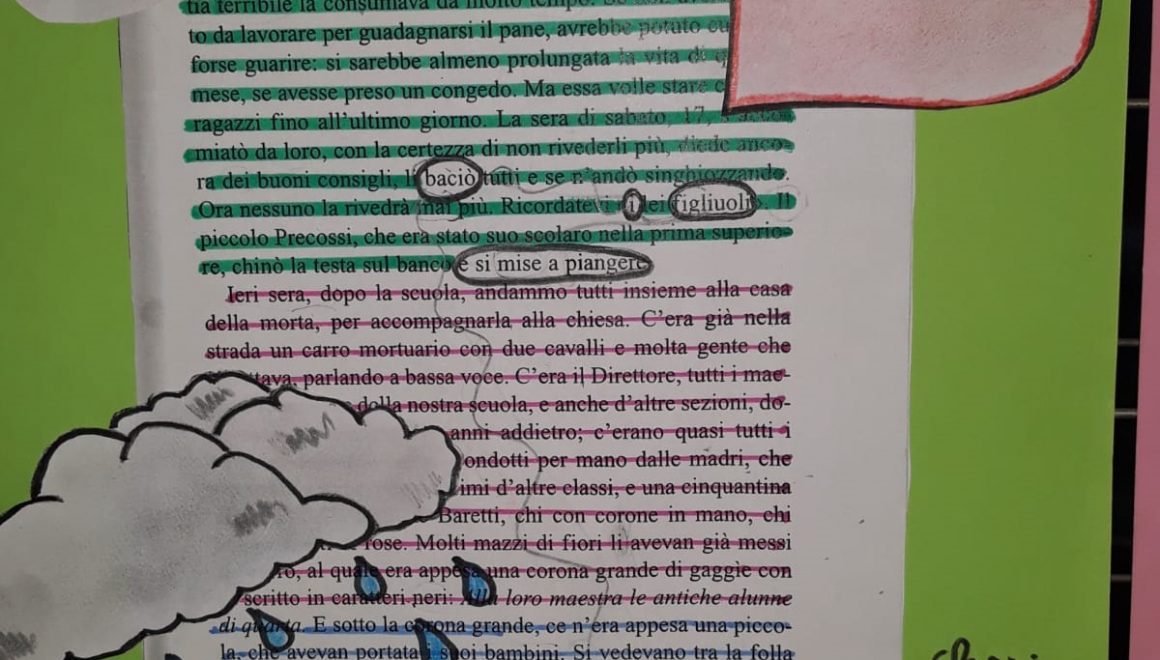 tia terribile la consumava da molto tempo.
to da lavorare per guadagnarsi il pane, avrebbe potuto
forse guarire: si sarebbe almeno prolungata la vita di
mese, se avesse preso un congedo. Ma essa volle stare
ragazzi fino all'ultimo giorno. La sera di sabato, 17,
miatò da loro, con la certezza di non rivederli più, diede anco-
ra dei buoni consigli, li baciò tutti e se n'andò singhiozzando.
Ora nessuno la rivedrà mai più. Ricordatevi i lei figliuoli». Il
piccolo Precossi, che era stato suo scolaro nella prima superio-
re, chinò la testa sul banco e si mise a piangere
Ieri sera, dopo la scuola, andammo tutti insieme alla casa
della morta, per accompagnarla alla chiesa. C'era già nella
strada un carro mortuario con due cavalli e molta gente che
tava, parlando a bassa voce. C'era il Direttore, tutti i mae-
della nostra scuola, e anche d'altre sezioni, do-
anni addietro; c'erano quasi tutti i
ondotti per mano dalle madri, che
imi d'altre classi, e una cinquantina
Baretti, chi con corone in mano, chi
rose. Molti mazzi di fiori li avevan già messi
ro, al quale era appesa una corona grande di gaggie con
scritto in caratteri neri: Alla loro maestra le antiche alunne
di quarta. E sotto la corona grande, ce n'era appesa una picco-
la, che avevan portata i suoi bambini. Si vedevano tra la folla